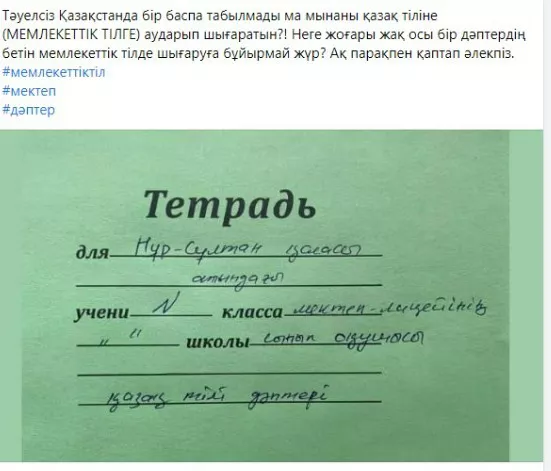 Тәуелсіз Қазақстанда бір баспа табылмады ма мынаны қазақ тіліне
(МЕМЛЕКЕТТІК ТІЛГЕ) аударып шығаратын?! Неге жоғары жақ осы бір дәптердің
бетін мемлекеттік тілде шығаруға бұйырмай жүр? Ақ парақпен қаптап әлекпіз.
#мемлекеттіктіл
#мектеп
#дәптер
Тетрадь
для Нұр-Сұлтан қаласы
атындағы
учени N класса мектеп-лицейінің
„ “ школы сынып оқушысы
қазақ тілі дәптері